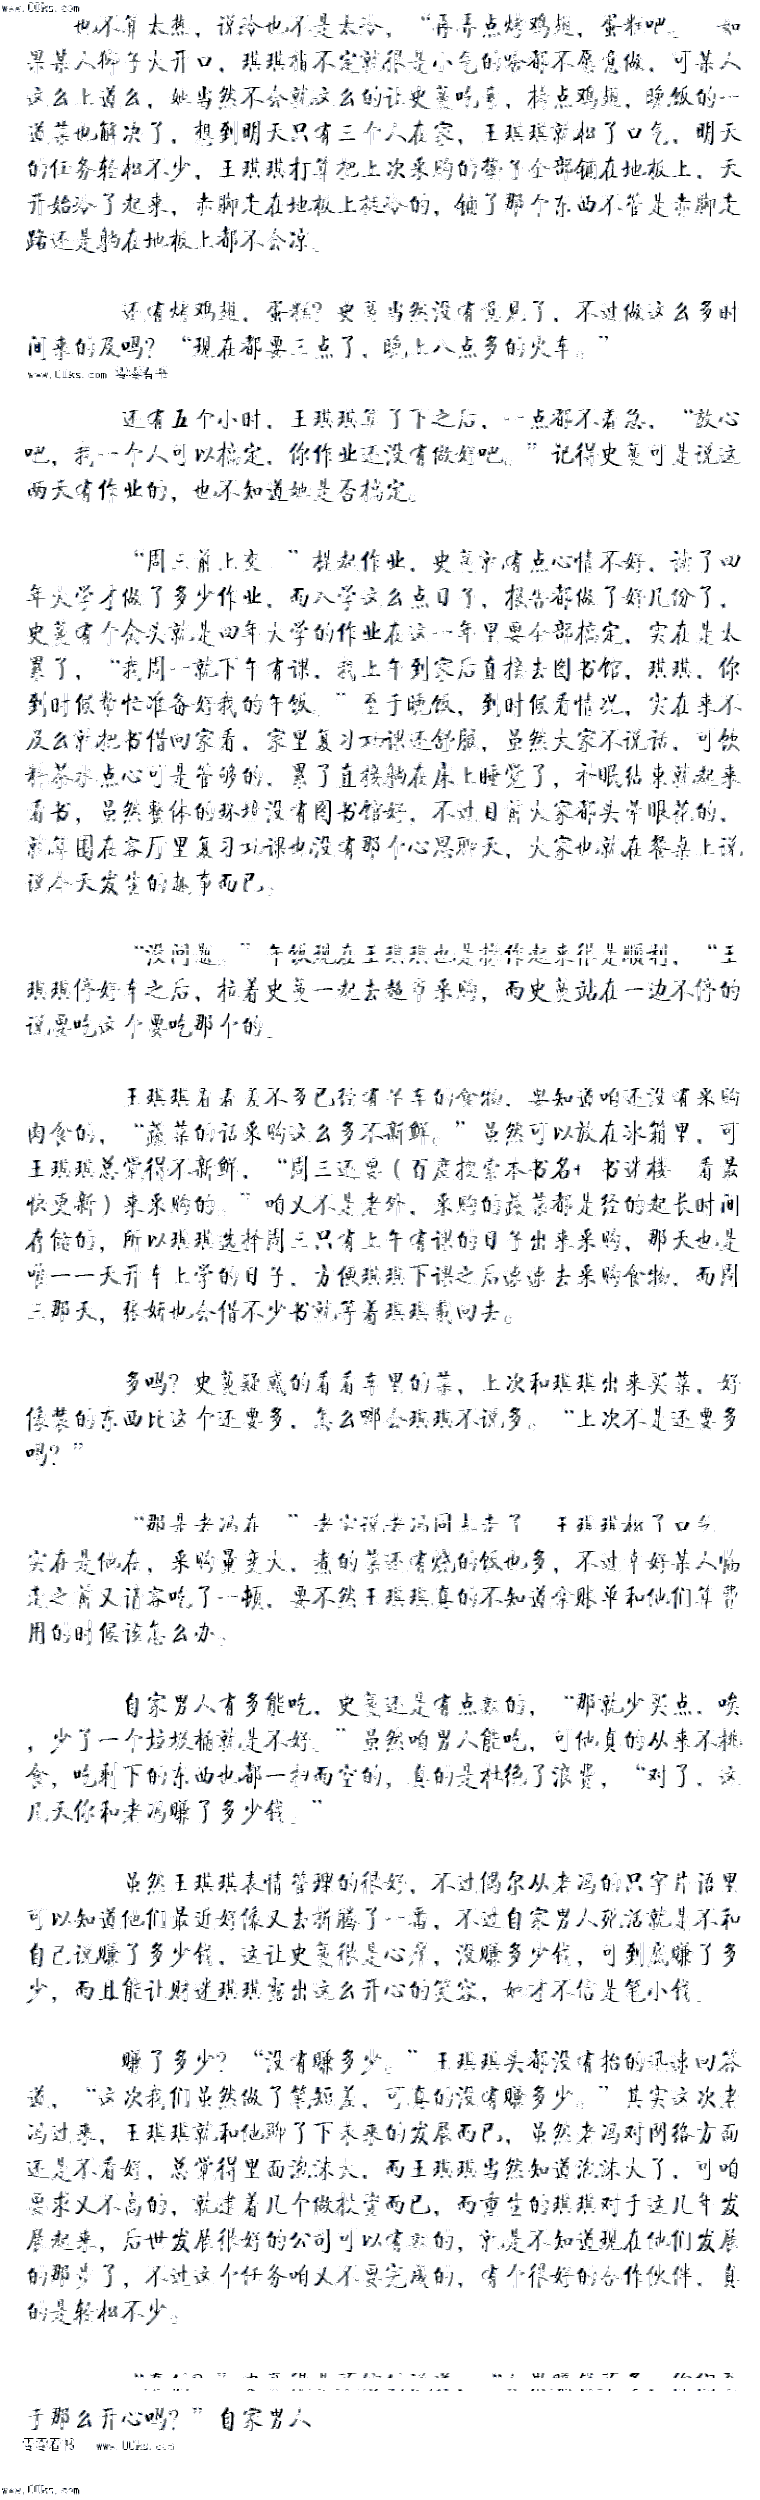 www.00ks.com
也不算太热，说冷也不是太冷，“再弄点烤鸡翅，蛋糕吧。 如
果某人狮子大开口，琪琪指不定就很是小气的啥都不愿意做，可某人
这么上道么，她当然不会就这么的让史蔓吃亏，烤点鸡翅，晚饭的一
道菜也解决了，想到明天只有三个人在家，王琪琪就松了口气，明天
的任务轻松不少，王琪琪打算把上次采购的垫子全部铺在地板上，天
开始冷了起来，赤脚走在地板上挺冷的，铺了那个东西不管是赤脚走
路还是躺在地板上都不会凉。
还有烤鸡翅，蛋糕？史蔓当然没有意见了，不过做这么多时
间来的及吗？“现在都要三点了，晚上八点多的火车。”
www.00ks.com 零零看书
还有五个小时，王琪琪算了下之后，一点都不着急，“放心
吧，我一个人可以搞定，你作业还没有做好吧。”记得史蔓可是说这
两天有作业的，也不知道她是否搞定。
“周三前上交。”提起作业，史蔓就有点心情不好，读了四
年大学才做了多少作业，而入学这么点日子，报告都做了好几份了，
史蔓有个念头就是四年大学的作业在这一年里要全部搞定，实在是太
累了，“我周一就下午有课，我上午到家后直接去图书馆，琪琪，你
到时候帮忙准备好我的午饭。”至于晚饭，到时候看情况，实在来不
及么就把书借回家看，家里复习功课还舒服，虽然大家不说话，可饮
料茶水点心可是管够的，累了直接躺在床上睡觉了，补眠结束就起来
看书，虽然整体的环境没有图书馆好，不过目前大家都头晕眼花的，
就算围在客厅里复习功课也没有那个心思聊天，大家也就在餐桌上说
说今天发生的趣事而已。
“没问题。”午饭现在王琪琪也是操作起来很是顺利，“王
琪琪停好车之后，拉着史蔓一起去超市采购，而史蔓站在一边不停的
说要吃这个要吃那个的。
王琪琪看看差不多已经有半车的食物，要知道咱还没有采购
肉食的，“蔬菜的话采购这么多不新鲜。”虽然可以放在冰箱里，可
王琪琪总觉得不新鲜，“周三还要（百度搜索本书名+ 书迷楼 看最
快更新）来采购的。”咱又不是老外，采购的蔬菜都是经的起长时间
存储的，所以琪琪选择周三只有上午有课的日子出来采购，那天也是
唯一一天开车上学的日子，方便琪琪下课之后速速去采购食物，而周
三那天，张妍也会借不少书就等着琪琪载回去。
多吗？史蔓疑惑的看看车里的菜，上次和琪琪出来买菜，好
像装的东西比这个还要多，怎么哪会琪琪不说多。“上次不是还要多
吗？”
“那是老冯在。”老实说老冯同志走了，王琪琪松了口气，
实在是他在，采购量变大，煮的菜还有烧的饭也多，不过幸好某人临
走之前又请客吃了一顿，要不然王琪琪真的不知道拿账单和他们算费
用的时候该怎么办。
自家男人有多能吃，史蔓还是有点数的，“那就少买点，唉
，少了一个垃圾桶就是不好。”虽然咱男人能吃，可他真的从来不挑
食，吃剩下的东西也都一扫而空的，真的是杜绝了浪费，“对了，这
几天你和老冯赚了多少钱。”
虽然王琪琪表情管理的很好，不过偶尔从老冯的只字片语里
可以知道他们最近好像又去折腾了一番，不过自家男人死活就是不和
自己说赚了多少钱，这让史蔓很是心痒，没赚多少钱，可到底赚了多
少，而且能让财迷琪琪露出这么开心的笑容，她才不信是笔小钱。
赚了多少？“没有赚多少。”王琪琪头都没有抬的迅速回答
道，“这次我们虽然做了笔短差，可真的没有赚多少。”其实这次老
冯过来，王琪琪就和他聊了下未来的发展而已，虽然老冯对网络方面
还是不看好，总觉得里面泡沫大，而王琪琪当然知道泡沫大了，可咱
要求又不高的，就逮着几个做投资而已，而重生的琪琪对于这几年发
展起来，后世发展很好的公司可以有数的，就是不知道现在他们发展
的那步了，不过这个任务咱又不要完成的，有个很好的合作伙伴，真
的是轻松不少。
于那么开心吗？”自家男人
零零看书 www.00ks.com
www.00ks.com